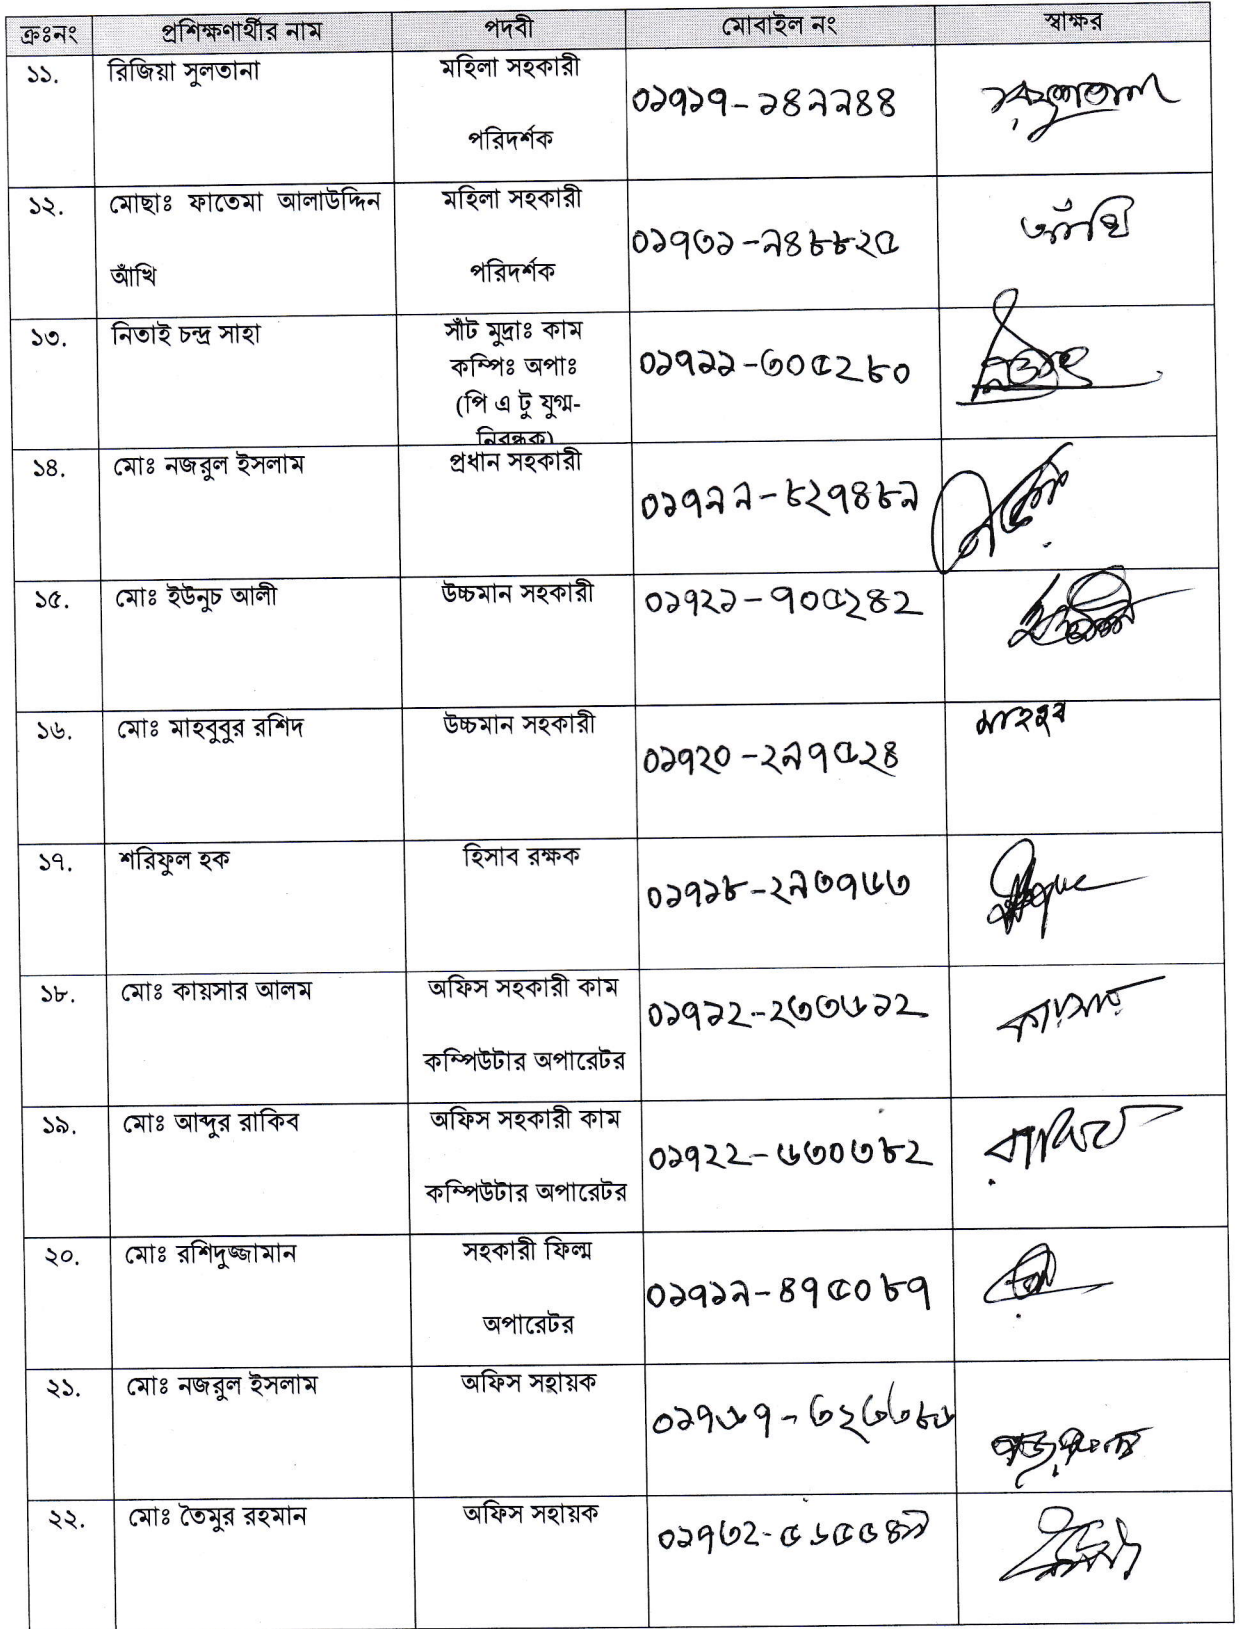 ক্রঃনং প্রশিক্ষণার্থীর নাম পদবী মোবাইল নং স্বাক্ষর
১১. রিজিয়া সুলতানা মহিলা সহকারী
পরিদর্শক ০১৭১৭-১৪৯৯৪৪
১২. মোছাঃ ফাতেমা আলাউদ্দিন মহিলা সহকারী
আঁখি পরিদর্শক ০১৭৩১-৯৪৮৮২৫ আঁখি
১৩. নিতাই চন্দ্র সাহা সাঁট মুদ্রাঃ কাম
কম্পিঃ অপাঃ ০১৭১১-৩০৫২৮০
(পি এ টু যুগ্ম-
নিবন্ধক)
১৪. মোঃ নজরুল ইসলাম প্রধান সহকারী
০১৭৯৯-৮২৭৪৮৯
১৫. মোঃ ইউনুচ আলী উচ্চমান সহকারী ০১৭২১-৭০৫২৪২
১৬. মোঃ মাহবুবুর রশিদ উচ্চমান সহকারী মাহবুব
০১৭২০-২৯৭৫২৪
১৭. শরিফুল হক হিসাব রক্ষক
০১৭১৮-২৯৩৭৬৩
১৮. মোঃ কায়সার আলম অফিস সহকারী কাম
কম্পিউটার অপারেটর ০১৭১২-২৩৩৬১২ কায়সার
১৯. মোঃ আব্দুর রাকিব অফিস সহকারী কাম
কম্পিউটার অপারেটর ০১৭২২-৬৩০৩৮২ রাকিব
২০. মোঃ রশিদুজ্জামান সহকারী ফিল্ম
অপারেটর ০১৭১৯-৪৭৫০৮৭
২১. মোঃ নজরুল ইসলাম অফিস সহায়ক
০১৭৬৭-৩২৩৩৮৬
২২. মোঃ তৈমুর রহমান অফিস সহায়ক
০১৭৩২-৫৬৫৫৪৯